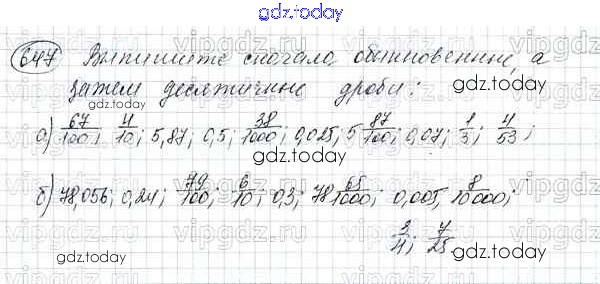 gdz.today
647 Выпишите сначала обыкновенные, а
затем десятичные дроби:
а) 67/100; 4/10; 5,87; 0,5; 38/1000; 0,025; 5 87/100; 0,07; 1/3; 4/53;
б) 78,056; 0,24; 79/100; 6/10; 0,3; 78 65/1000; 0,005; 8/10000;
3/4; 7/25
gdz.today
gdz.today
gdz.today
gdz.today
gdz.today
gdz.today